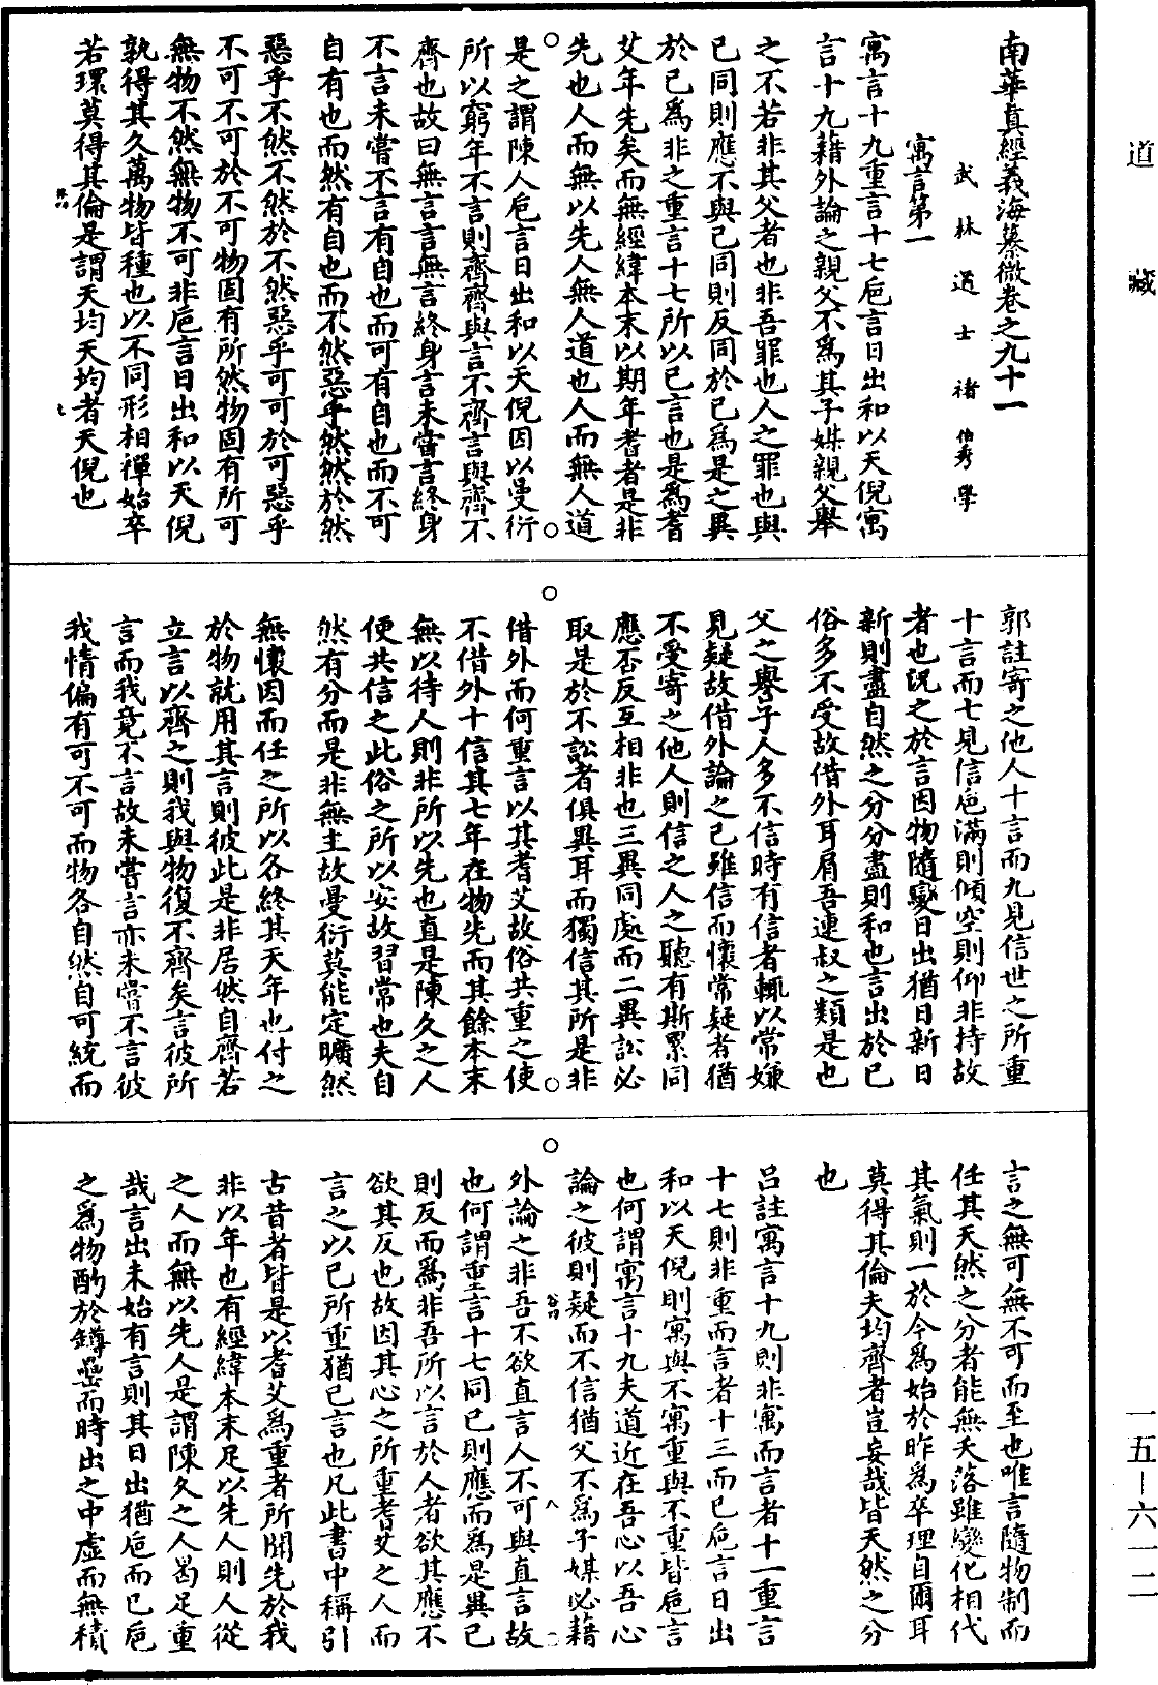 道藏
南華真經義海纂微卷之九十一
武林道士褚伯秀學
寓言第一
寓言十九重言十七巵言日出和以天倪寓
言十九藉外論之親父不爲其子媒親父舉
之不若非其父者也非吾罪也人之罪也與
已同則應不與已同則反同於已爲是之異
於已爲非之重言十七所以已言也是爲耆
艾年先矣而無經緯本末以期年耆者是非
先也人而無以先人無人道也人而無人道
是之謂陳人巵言日出和以天倪因以曼衍
所以窮年不言則齊齊與言不齊言與齊不
齊也故曰無言言無言終身言未嘗言終身
不言未嘗不言有自也而可有自也而不可
自有也而然有自也而不然惡乎然然於然
惡乎不然不然於不然惡乎可可於可惡乎
不可不可於不可物固有所然物固有所可
無物不然無物不可非巵言日出和以天倪
孰得其久萬物皆種也以不同形相禪始卒
若環莫得其倫是謂天均天均者天倪也
七
郭註寄之他人十言而九見信世之所重
十言而七見信巵滿則傾空則仰非持故
者也況之於言因物隨變日出猶日新日
新則盡自然之分分盡則和也言出於已
俗多不受故借外耳肩吾連叔之類是也
父之譽子人多不信時有信者輒以常嫌
見疑故借外論之已雖信而懷常疑者猶
不受寄之他人則信之人之聽有斯累同
應否反互相非也三異同處而二異訟必
取是於不訟者俱異耳而獨信其所是非
借外而何重言以其耆艾故俗共重之使
不借外十信其七年在物先而其餘本末
無以待人則非所以先也直是陳久之人
便共信之此俗之所以安故習常也夫自
然有分而是非無主故曼衍莫能定曠然
無懷因而任之所以各終其天年也付之
於物就用其言則彼此是非居然自齊若
立言以齊之則我與物復不齊矣言彼所
言而我竟不言故未嘗言亦未嘗不言彼
我情偏有可不可而物各自然自可統而
言之無可無不可而至也唯言隨物制而
任其天然之分者能無夭落雖變化相代
其氣則一於今爲始於昨爲卒理自爾耳
莫得其倫夫均齊者豈妄哉皆天然之分
也
呂註寓言十九則非寓而言者十一重言
十七則非重而言者十三而已巵言日出
和以天倪則寓與不寓重與不重皆巵言
也何謂寓言十九夫道近在吾心以吾心
論之彼則疑而不信猶父不爲子媒必藉
外論之非吾不欲直言人不可與直言故
也何謂重言十七同已則應而爲是異已
則反而爲非吾所以言於人者欲其應不
欲其反也故因其心之所重耆艾之人而
言之以已所重猶已言也凡此書中稱引
古昔者皆是以耆艾爲重者所聞先於我
非以年也有經緯本末足以先人則人從
之人而無以先人是謂陳久之人曷足重
哉言出未始有言則其日出猶巵而已巵
之爲物酌於罇罍而時出之中虛而無積
八
一五—六一二